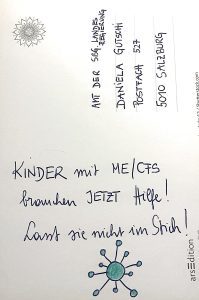 AMT DER SBG LANDES
REGIERUNG
DANIELA GUTSCHI
POSTFACH 527
5010 SALZBURG
KINDER mit ME/CFS
brauchen JETZT Hilfe!
Lasst sie nicht im Stich!
arsEdition